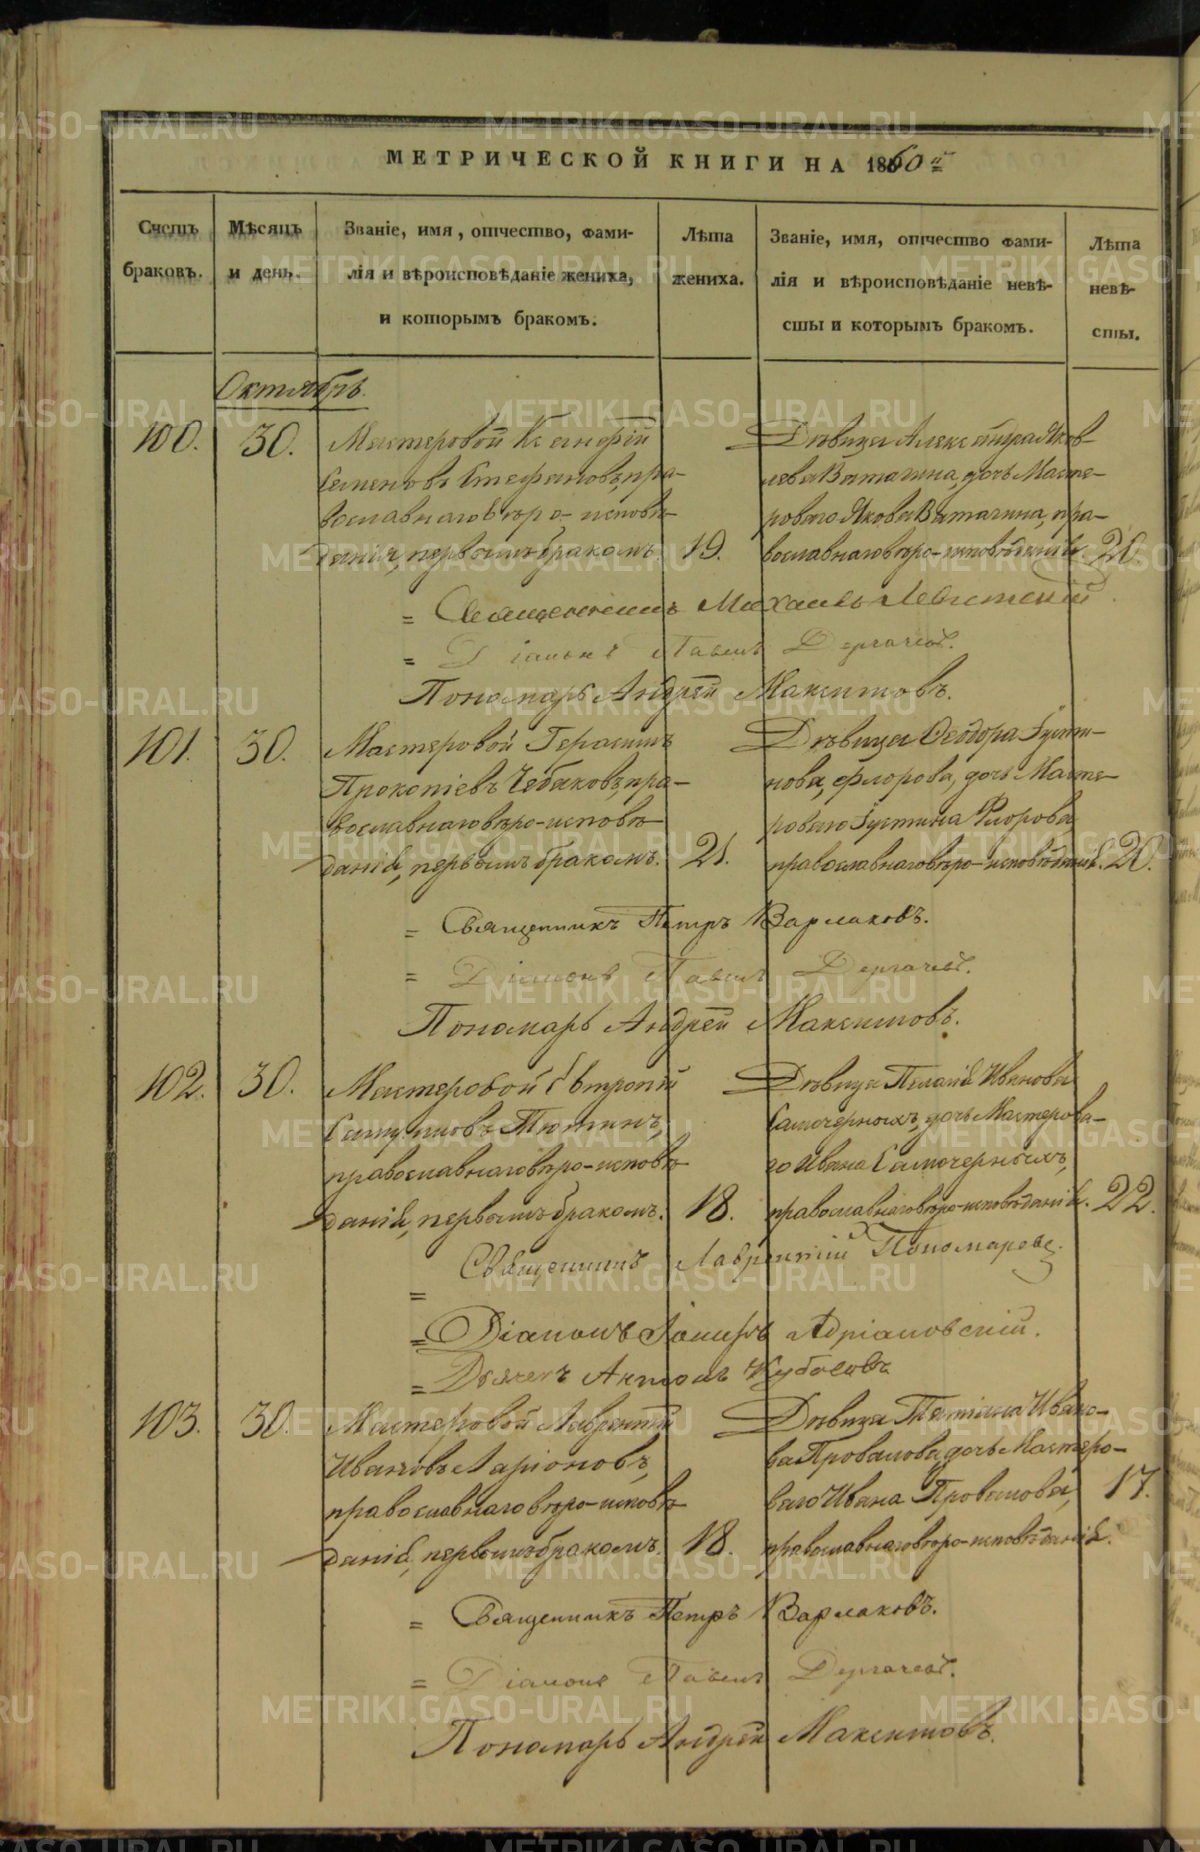 МЕТРИЧЕСКОЙ КНИГИ НА 1860й
Счетъ браковъ.
Мѣсяцъ и день.
Званіе, имя, отчество, фами-
лія и вѣроисповѣданіе жениха,
и которымъ бракомъ.
Лѣта
жениха.
Званіе, имя, отчество фами-
лія и вѣроисповѣданіе невѣ-
сты и которымъ бракомъ.
Лѣта
невѣ-
сты.
Октябрь.
100. 30.
Мастеровой Ксенофій
Семеновъ Стефановъ, пра-
вославнаго вѣро-исповѣ-
данія, первымъ бракомъ. 19.
Дѣвица Александра Яков-
лева Ватагина, дочь Масте-
роваго Якова Ватагина, пра-
вославнаго вѣро-исповѣданія. 20
= Священникъ Михаилъ Левитскій
= Діаконъ Павелъ Дергачев.
Пономарь Андрей Максимовъ.
101. 30.
Мастеровой Герасимъ
Прокопіевъ Чебаковъ, пра-
вославнаго вѣро-исповѣ-
данія, первымъ бракомъ. 21.
Дѣвица Ѳеодора Іусти-
нова, Флорова, дочь Масте-
роваго Іустина Флорова
православнаго вѣро-исповѣданія. 20.
= Священникъ Петръ Варлаковъ.
= Діаконъ Павелъ Дергачев.
Пономарь Андрей Максимовъ.
102. 30.
Мастеровой Евтропій
Тютинъ,
православнаго вѣро-исповѣ-
данія, первымъ бракомъ. 18.
Дѣвица Пелагія Иванова
Самочерныхъ, дочь Мастерова-
го Ивана Самочерныхъ,
православнаго вѣро-исповѣданія. 22.
= Священникъ Лаврентій Пономаревъ.
= Діаконъ Адріановскій.
= Дьячекъ Антонъ Кубасовъ
103. 30.
Мастеровой Лаврентій
Ивановъ Ларіоновъ,
православнаго вѣро-исповѣ-
данія, первымъ бракомъ. 18.
Дѣвица Татіана Ивано-
ва Провалова дочь Мастеро-
ваго Ивана Провалова, 17.
православнаго вѣро-исповѣданія.
= Священникъ Петръ Варлаковъ.
= Діаконъ Павелъ Дергачев.
Пономарь Андрей Максимовъ.
METRIKI.GASO-URAL.RU